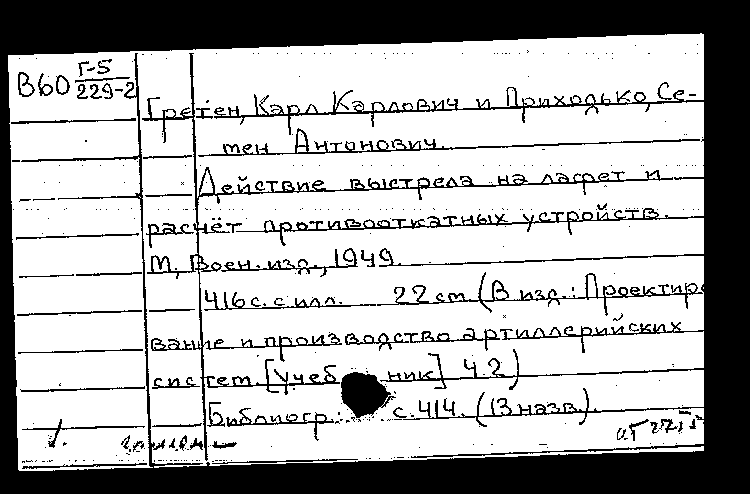 В60 Г-5/229-2
Гретен, Карл Карлович и Приходько, Се-
мен Антонович.
Действие выстрела на лафет и
расчёт противооткатных устройств.
М., Воен. изд., 1949.
416 с. с илл. 22 см (В изд.: Проектиро
вание и производство артиллерийских
систем. [Учебник] Ч. 2)
Библиогр.: с. 414. (13 назв).
1.